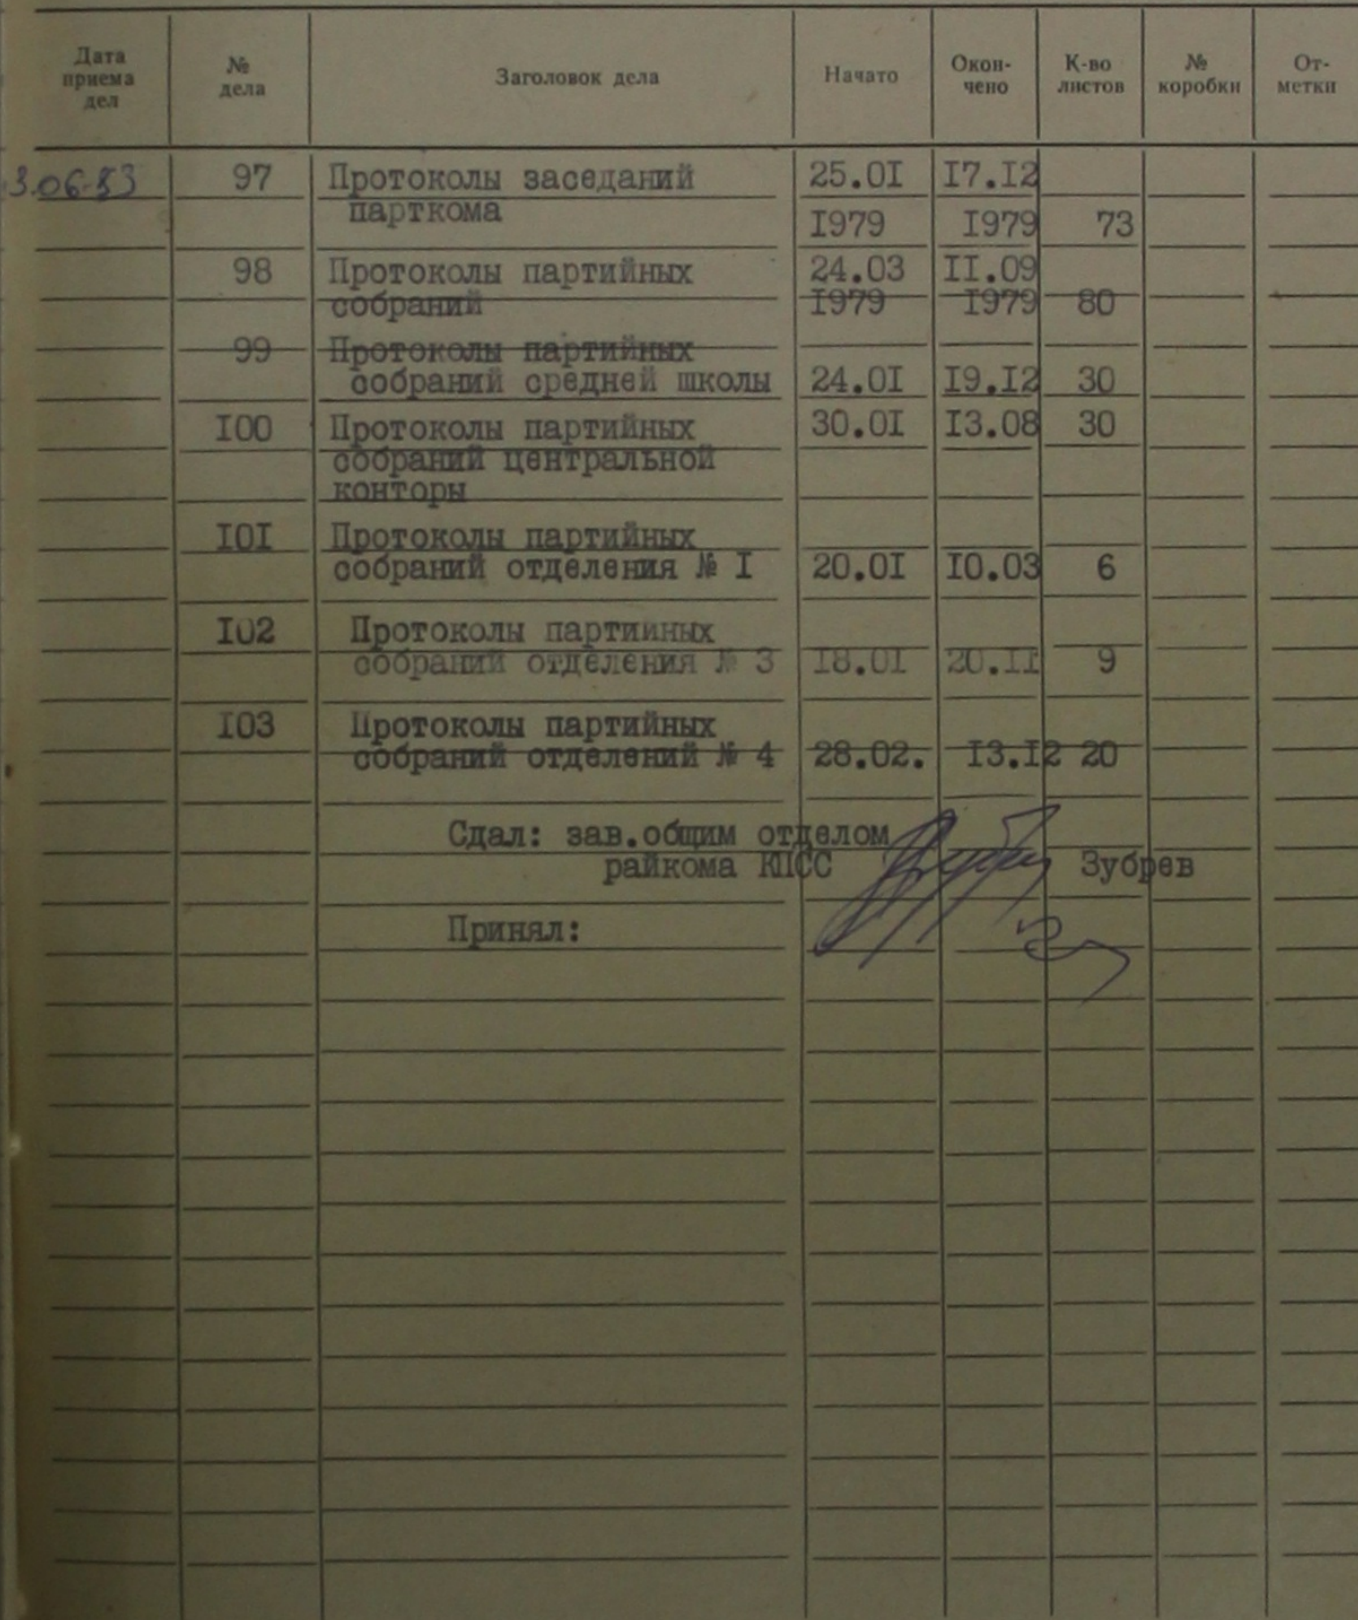 Дата приема дел № дела Заголовок дела Начато Окон- чено К-во листов № коробки От- метки
3.06.83 97 Протоколы заседаний 25.01 17.12
парткома
1979 1979 73
98 Протоколы партийных 24.03 11.09
собраний 1979 1979 80
99 Протоколы партийных
собраний средней школы 24.01 19.12 30
100 Протоколы партийных 30.01 13.08 30
собраний центральной
конторы
101 Протоколы партийных
собраний отделения № 1 20.01 10.03 6
102 Протоколы партийных
собраний отделения № 3 18.01 20.11 9
103 Протоколы партийных
собраний отделений № 4 28.02. 13.12 20
Сдал: зав.общим отделом
райкома КПСС Зубрев
Принял: